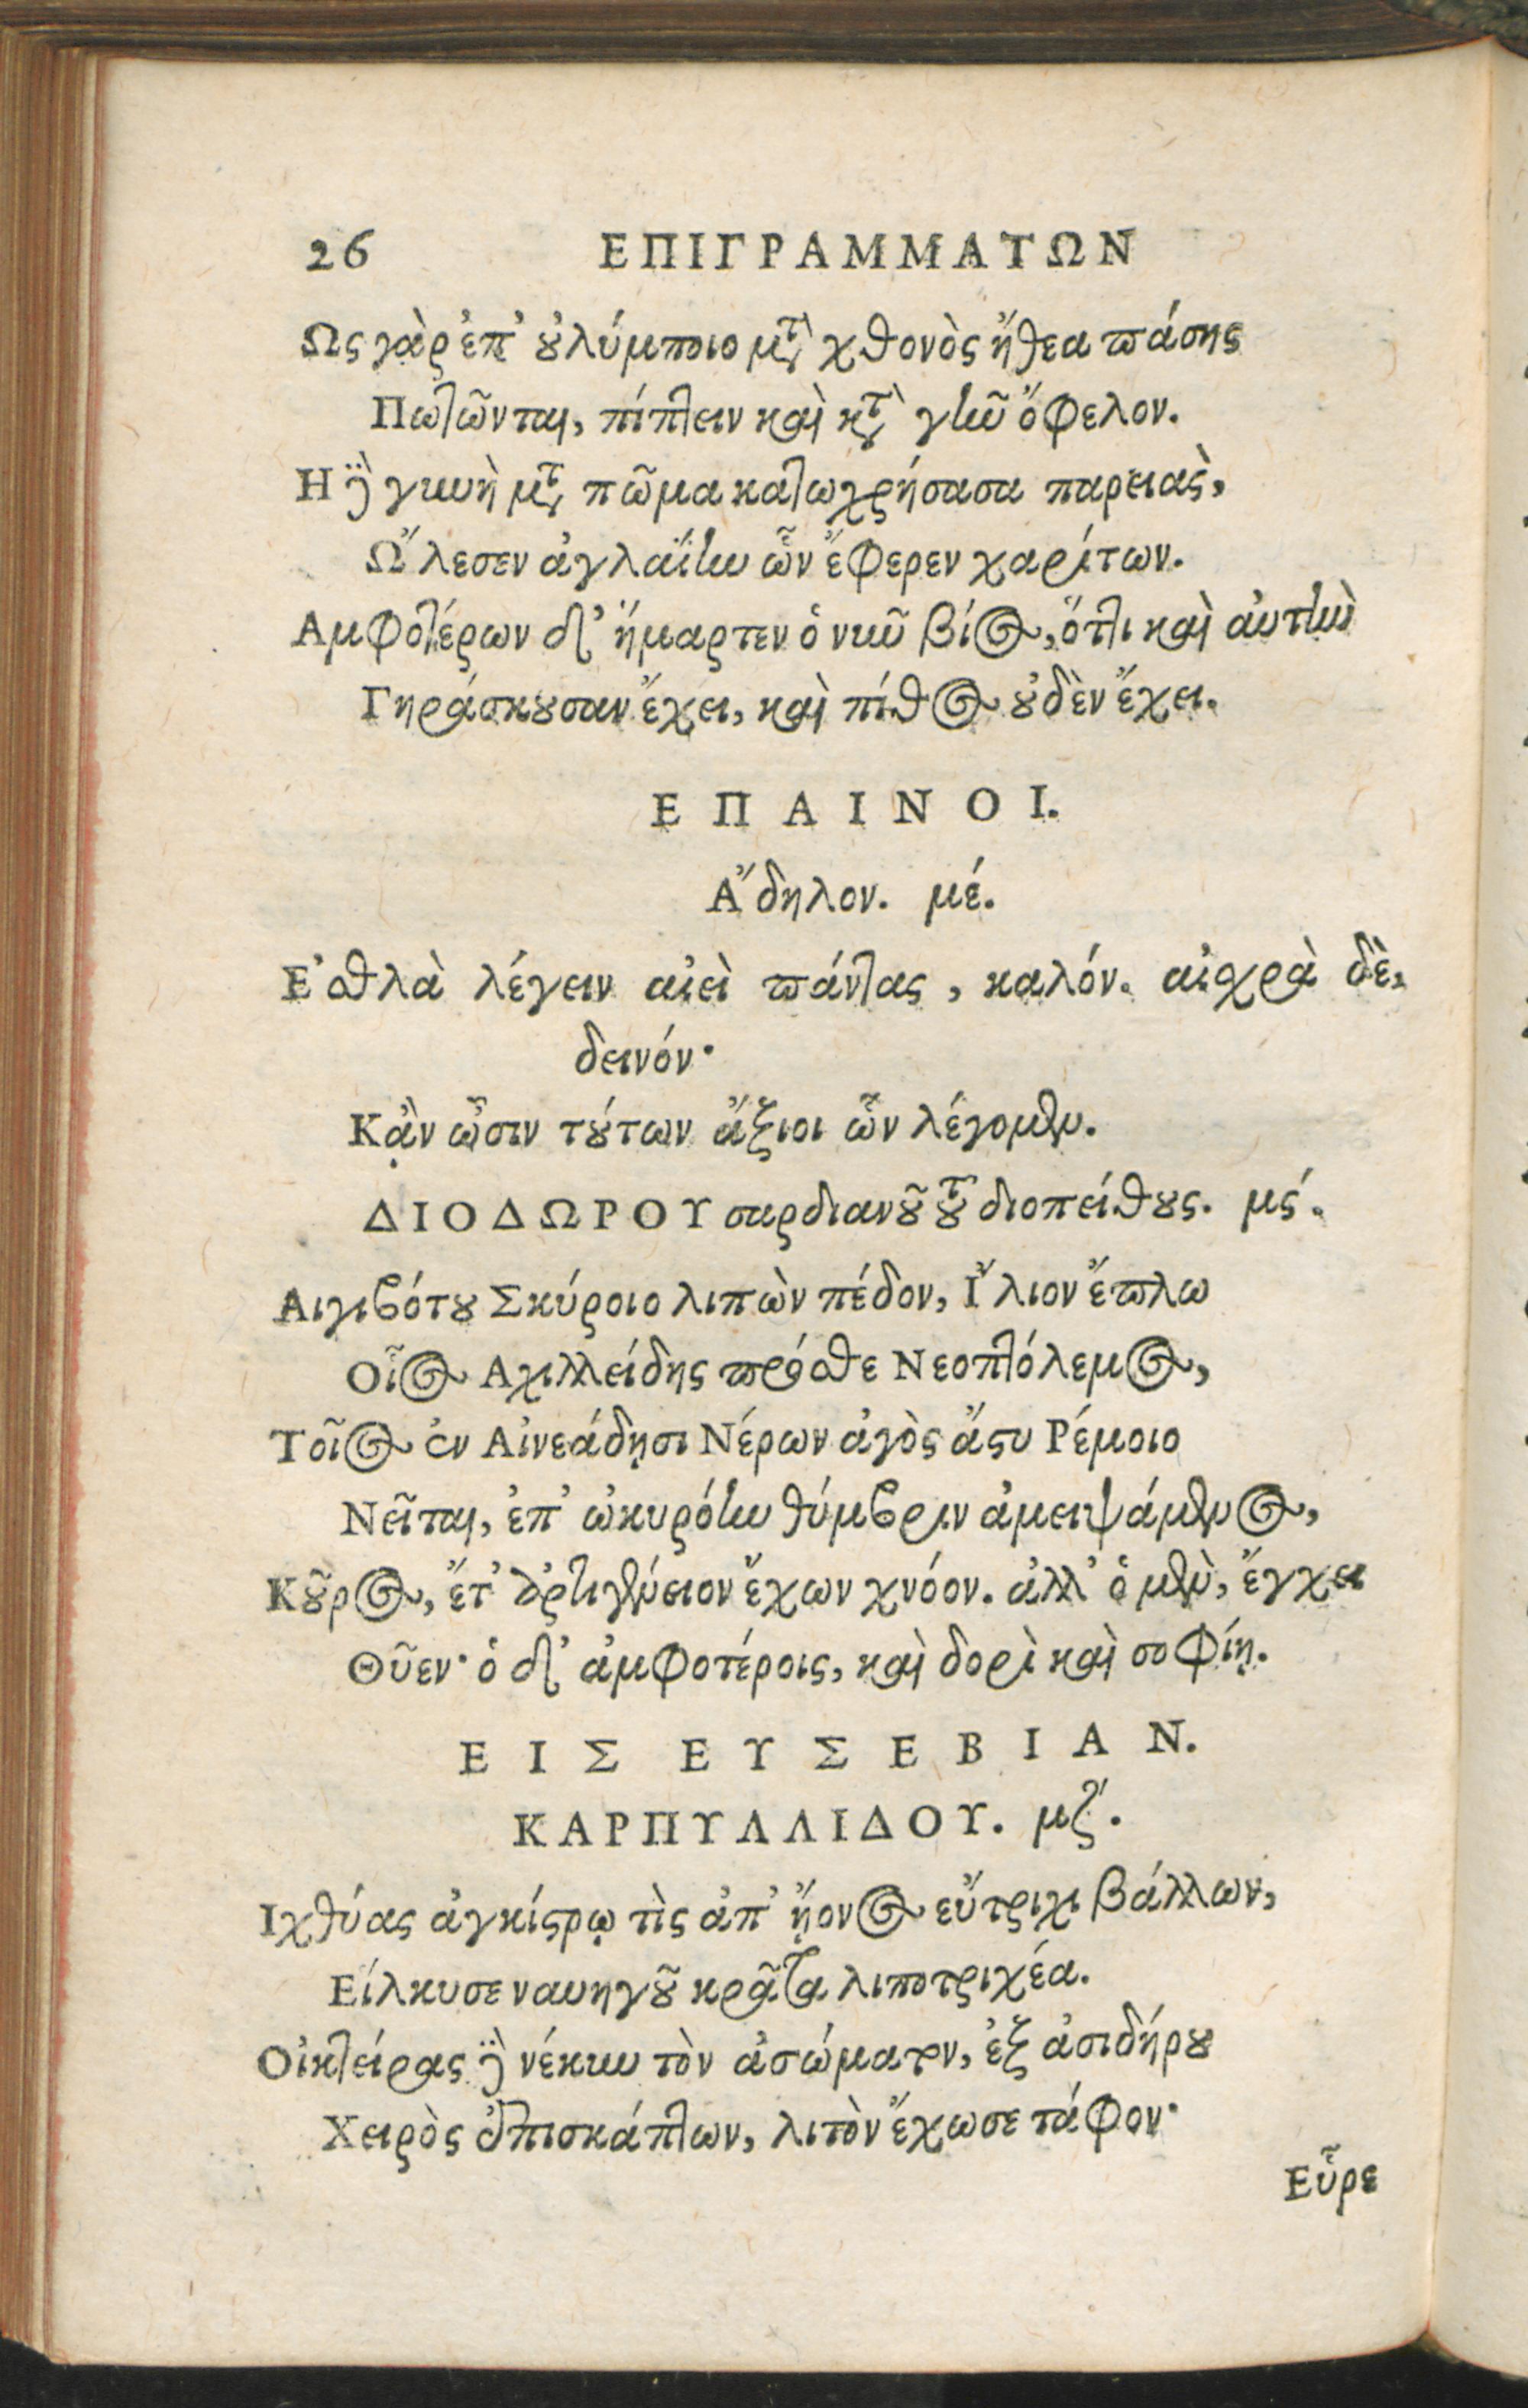 26 ΕΠΙΓΡΑΜΜΑΤΩΝ
Ως γὰρ ἐπ' οὐλύμποιο μετὰ χθονὸς ἤθεα πάσης
Πωτῶνται, πίπτειν καὶ κατὰ γῆν ὄφελον.
Η δὲ γυνὴ μετὰ πῶμα κατωχρήσασα παρειὰς,
Ὤλεσεν ἀγλαΐην ὧν ἔφερεν χαρίτων.
Αμφοτέρων δ' ἥμαρτεν ὁ νῦν βίος, ὅττι καὶ αὐτὴν
Γηράσκουσαν ἔχει, καὶ πίθος οὐδὲν ἔχει.
ΕΠΑΙΝΟΙ.
Ἄδηλον. μέ.
Ἐσθλὰ λέγειν αἰεὶ πάντας, καλόν. αἰσχρὰ δὲ,
δεινόν·
Κᾂν ὦσιν τούτων ἄξιοι ὧν λέγομεν.
ΔΙΟΔΩΡΟΥ σαρδιανοῦ τοῦ διοπείθους. μς́.
Αιγιβότου Σκύροιο λιπὼν πέδον, Ἴλιον ἔπλω
Οἷος Αχιλλείδης πρόσθε Νεοπτόλεμος,
Τοῖος ἐν Αἰνεάδῃσι Νέρων ἀγὸς ἄστυ Ρέμοιο
Νεῖται, ἐπ' ὠκυρόην θύμβριν ἀμειψάμενος,
Κοῦρος, ἔτ' ἀρτιγένειον ἔχων χνόον. ἀλλ' ὁ μὲν, ἔγχει
Θῦεν· ὁ δ' ἀμφοτέροις, καὶ δορὶ καὶ σοφίῃ.
ΕΙΣ ΕΥΣΕΒΙΑΝ.
ΚΑΡΠΥΛΛΙΔΟΥ. μζ́.
Ιχθύας ἀγκίστρῳ τὶς ἀπ' ᾔονος εὔτριχι βάλλων,
Εἵλκυσε ναυηγοῦ κρᾶτα λιποτριχέα.
Οἰκτείρας δὲ νέκυν τὸν ἀσώματον, ἐξ ἀσιδήρου
Χειρὸς ἐπισκάπτων, λιτὸν ἔχωσε τάφον·
Εὗρε